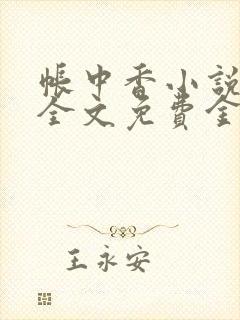 帳中香小說
全文免費全
王永安